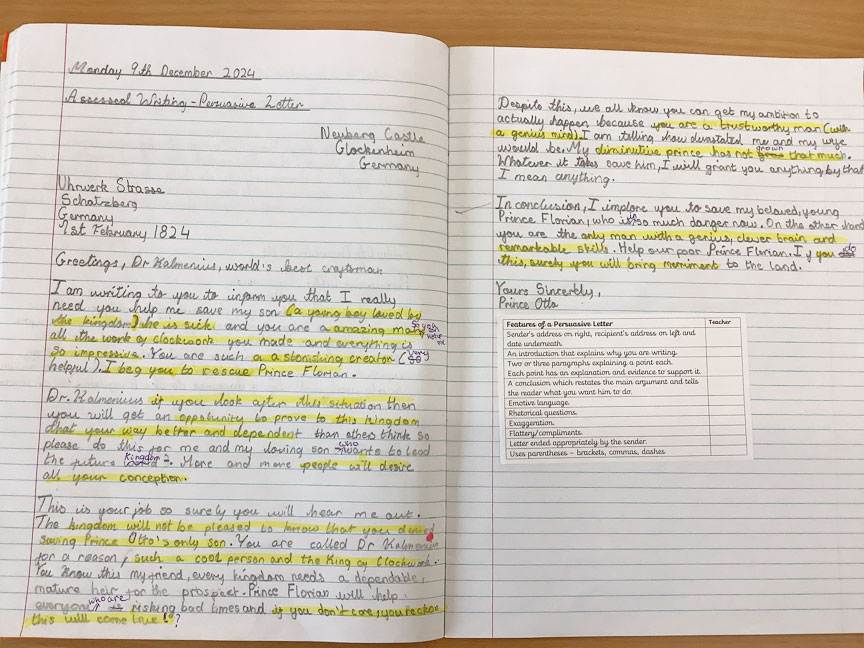 Monday 9th December 2024
Assessed Writing - Persuasive Letter
Neuberg Castle
Glockenheim
Germany
Uhrwerk Strasse
Schatzberg
Germany
1st February 1824
Greetings, Dr Kalmenius, world's best craftsman
I am writing to you to inform you that I really
need you help me save my son (a young boy loved by
the kingdom) he is sick and you are a amazing man
all the work of clockwork you made and everything is
so impressive. You are such a a stonishing creator (very
helpful). I beg you to rescue Prince Florian.
Dr. Kalmenius if you look after this situation then
you will get an opptunity to prove to this kingdom
that your way better and dependent than others think so
please do this for me and my loving son who wants to lead
the future kingdom. More and more people will desire
all your conception.
This is your job so surely you will hear me out.
The kingdom will not be pleased to know that you denied
saving Prince Otto's only son. You are called Dr Kalmenius
for a reason, such a cool person and the King of Clockwork.
You know this my friend, every kingdom needs a dependable,
mature heir for the prospect. Prince Florian will help
everyone who are risking bad times and if you don't care, you reckon
this will come true!?
Despite this, we all know you can get my ambition to
actually happen because you are a trustworthy man (with
a genius mind). I am telling how devastated me and my wife
would be. My diminutive prince has not grown that much.
Whatever it takes save him, I will grant you anything by that
I mean anything.
In conclusion, I implore you to save my beloved, young
Prince Florian, who is in so much danger now. On the other hand
you are the only man with a genius, clever brain and
remarkable skills. Help our poor Prince Florian. If you do
this, surely you will bring merriment to the land.
Yours Sincerely,
Prince Otto
Features of a Persuasive Letter Teacher
Sender's address on right, recipient's address on left and
date underneath.
An introduction that explains why you are writing.
Two or three paragraphs explaining a point each.
Each point has an explanation and evidence to support it.
A conclusion which restates the main argument and tells
the reader what you want him to do.
Emotive language.
Rhetorical questions.
Exaggeration.
Flattery/compliments.
Letter ended appropriately by the sender.
Uses parentheses - brackets, commas, dashes